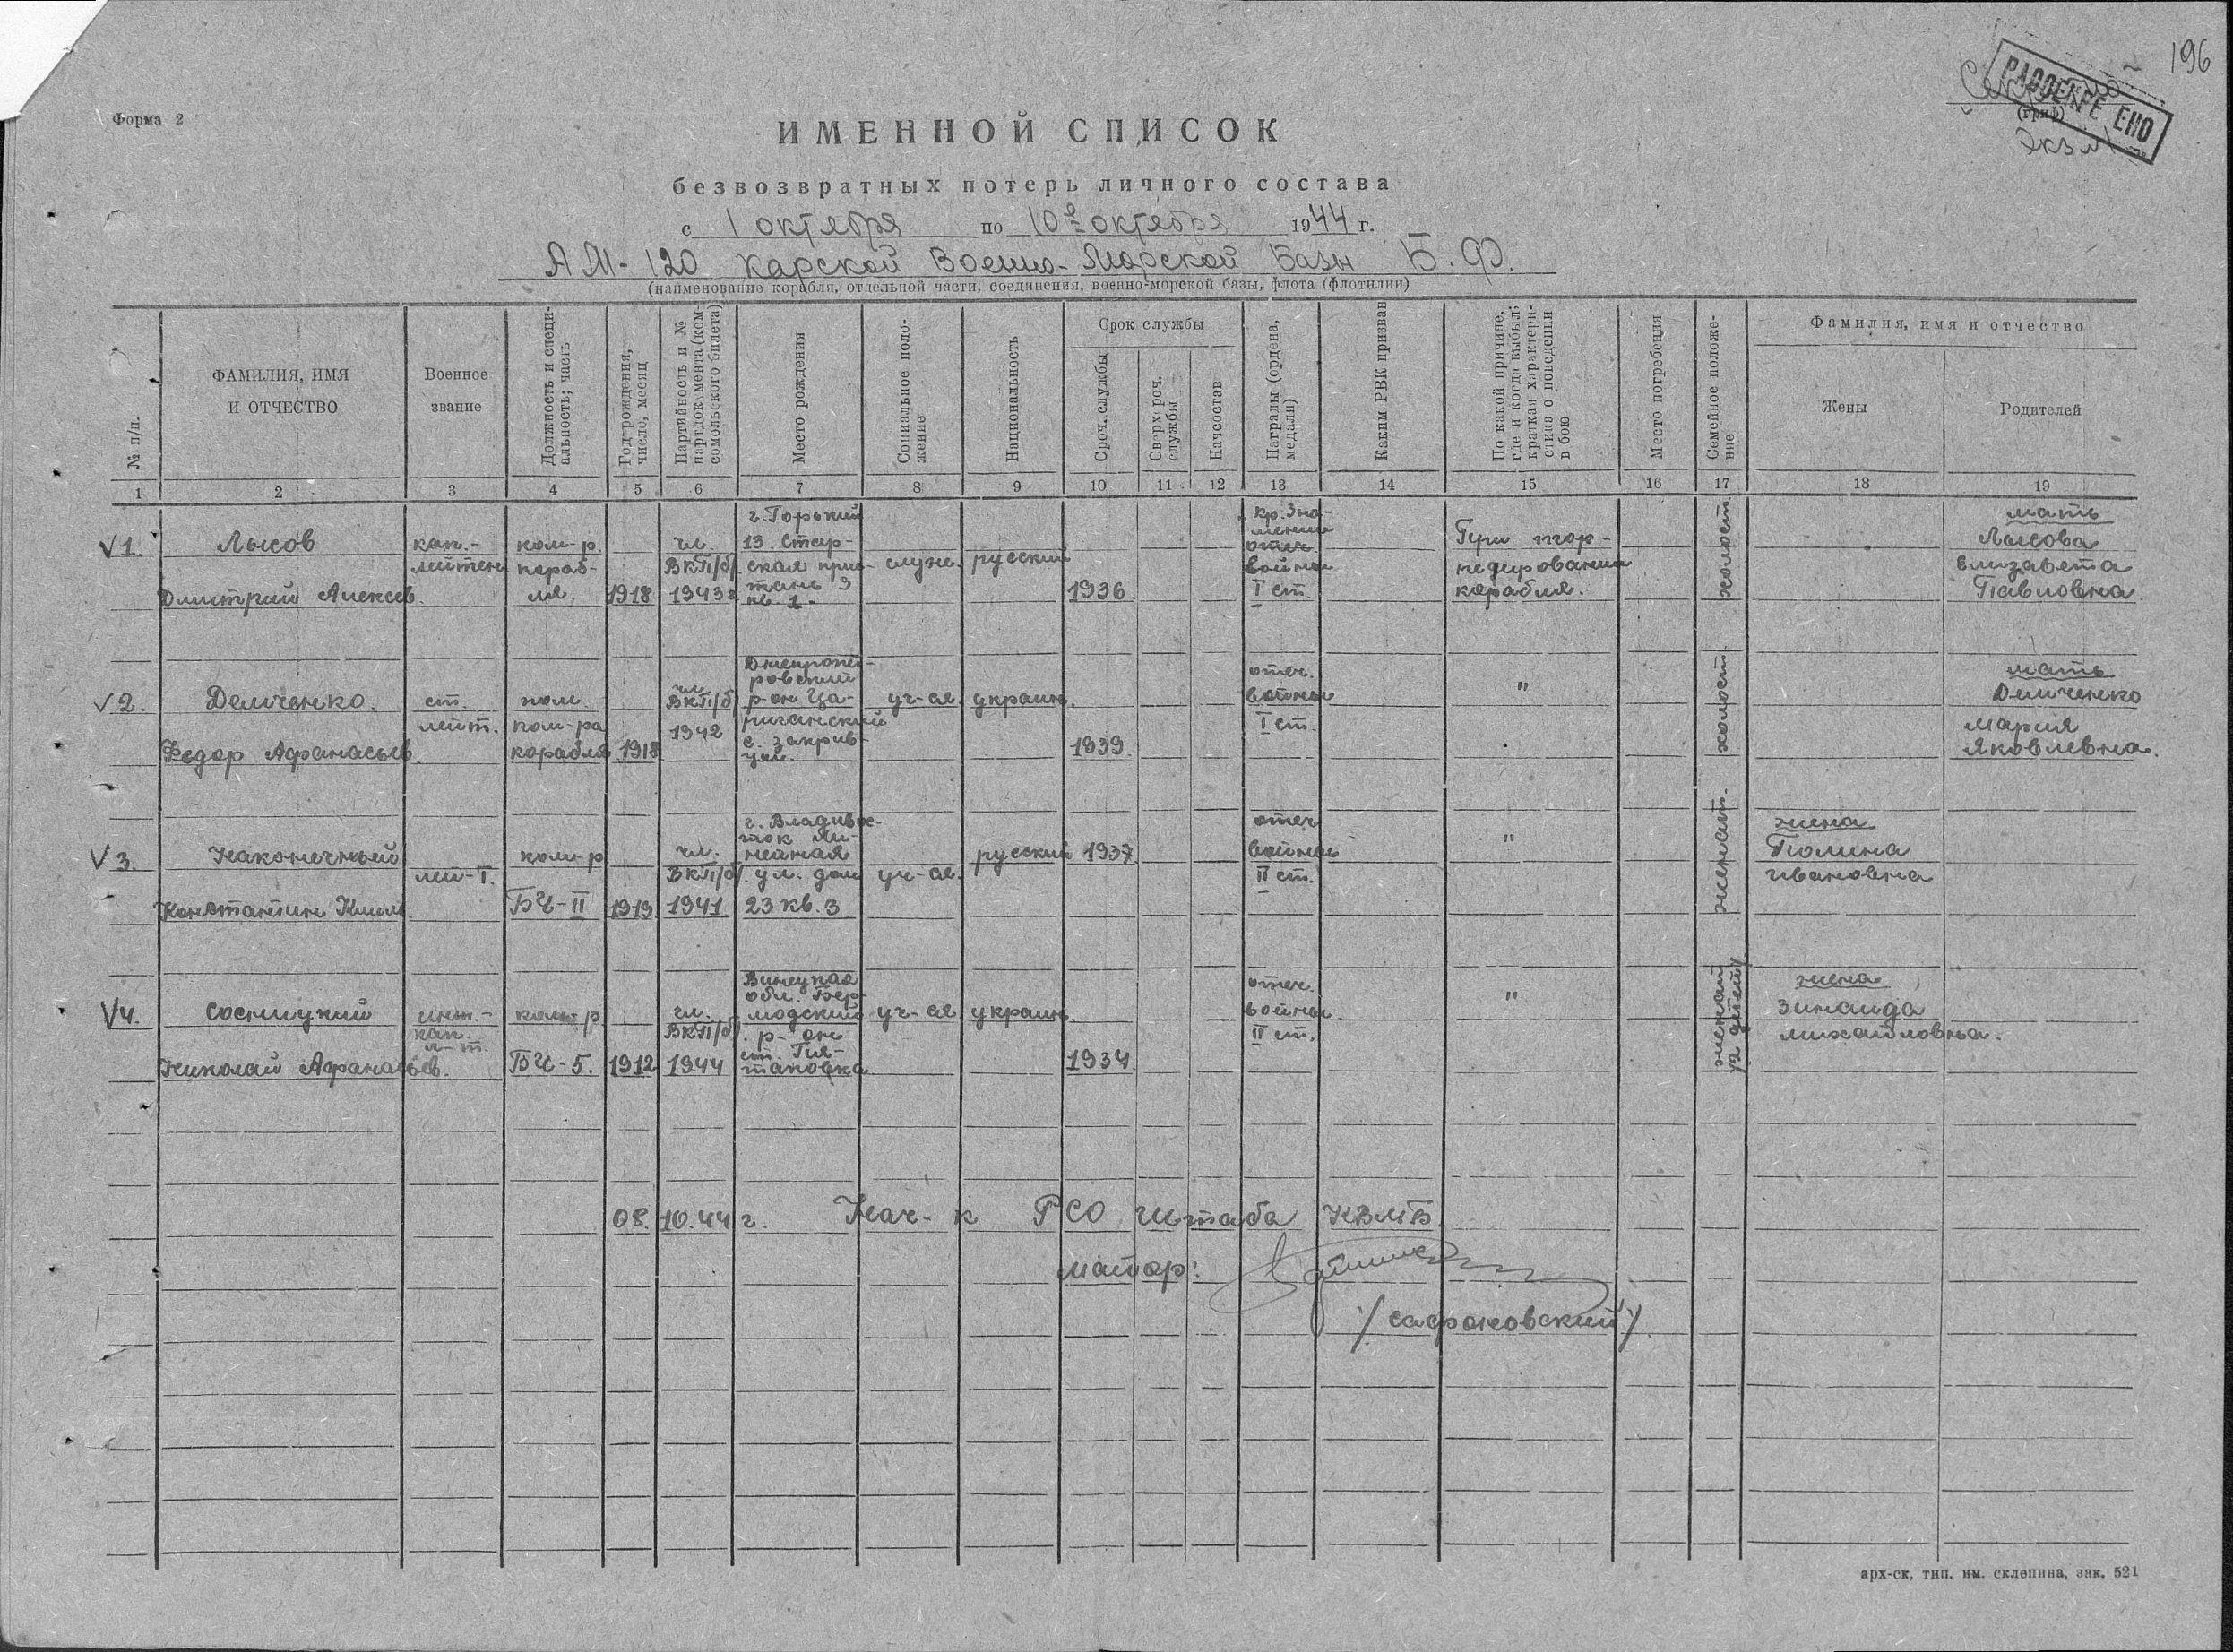 196
Секретно
РАССЕКРЕ ЕНО
(гриф)
Экз №1
Форма 2
ИМЕННОЙ СПИСОК
безвозвратных потерь личного состава
с 1 октября по 10е октября 1944 г.
АМ-120 Карской Военно-Морской Базы Б.Ф.
(наименование корабля, отдельной части, соединения, военно-морской базы, флота (флотилии)
№ п/п.
ФАМИЛИЯ, ИМЯ
И ОТЧЕСТВО
Военное
звание
Должность и специ-
альность; часть
Год рождения,
число, месяц
Партийность и №
партдокумента (ком-
сомольского билета)
Место рождения
Социальное поло-
жение
Национальность
Срок службы
Сроч. службы
Сверхсроч.
службы
Начсостав
Награды (ордена,
медали)
Каким РВК призван
По какой причине,
где и когда выбыл;
краткая характери-
стика о поведении
в бою
Место погребения
Семейное положе-
ние
Фамилия, имя и отчество
Жены
Родителей
1 2 3 4 5 6 7 8 9 10 11 12 13 14 15 16 17 18 19
V 1.
Лысов
Дмитрий Алексеев.
кап.-
лейтен
ком-р
кораб-
ля.
1918
чл.
ВКП/б/
1943г
г. Горький
13. Стар-
ская прис-
тань 9
кв. 1.
служ.
русский
1936
Кр. Зна-
мении
отеч.
войны
I ст.
При тор-
педировании
корабля.
холост.
мать
Лысова
Елизавета
Павловна.
V 2.
Демченко.
Федор Афанасьев.
ст.
лейт.
пом.
ком-ра
корабля
1918
чл.
ВКП/б/
1942
Днепропет-
ровский
р-он Ца-
ричанский
с.
уч-ся
украин.
1939.
отеч.
войны
I ст.
"
холост.
мать
Демченко
Мария
Яковлевна.
V 3.
Наконечный
Константин Клим
лей-т.
ком-р
БЧ-II
1913
чл.
ВКП/б/.
1941
г. Владивос-
ток Ли-
нейная
ул. дом
23 кв. 3
уч-ся.
русский
1937
отеч
войны
II ст.
"
женат.
жена
Полина
Ивановна
V 4.
Сосницкий
Николай Афанасьев.
инж.-
кап.
л-т.
ком-р
БЧ-5.
1912
чл.
ВКП/б/.
1944
Винецкая
обл. Бер-
р-он
ст.
уч-ся
украин.
1934
отеч.
войны
II ст.
"
женат
/2 детей/
жена
Зинаида
Михайловна.
08.10.44 г. Нач-к РСО штаба КВМБ.
майор:
/Сафоновский/
арх-ск, тип. им. склепина, зак. 521